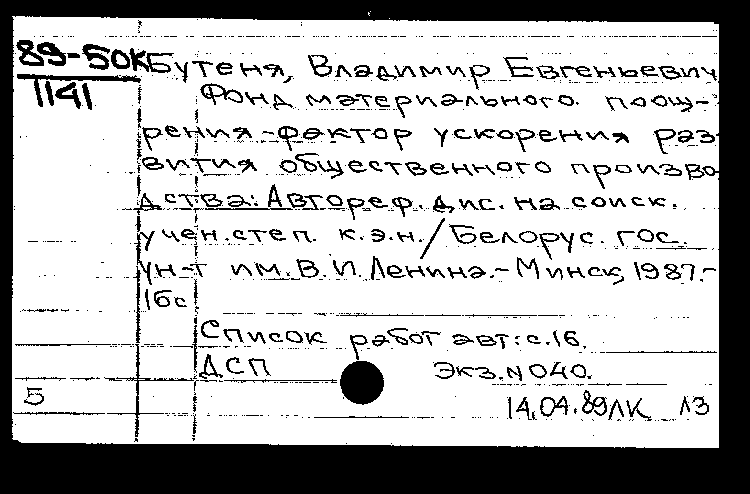 89-50К Бутеня, Владимир Евгеньевич
1141 Фонд материального поощ-
рения-фактор ускорения раз-
вития общественного произво
дства: Автореф. дис. на соиск.
учен. степ. к.э.н./ Белорус. гос.
ун-т им. В. И. Ленина.- Минск, 1987.-
16с
Список работ авт: с.16.
ДСП Экз. N 040.
5
14.04.89 ЛК ЛЗ